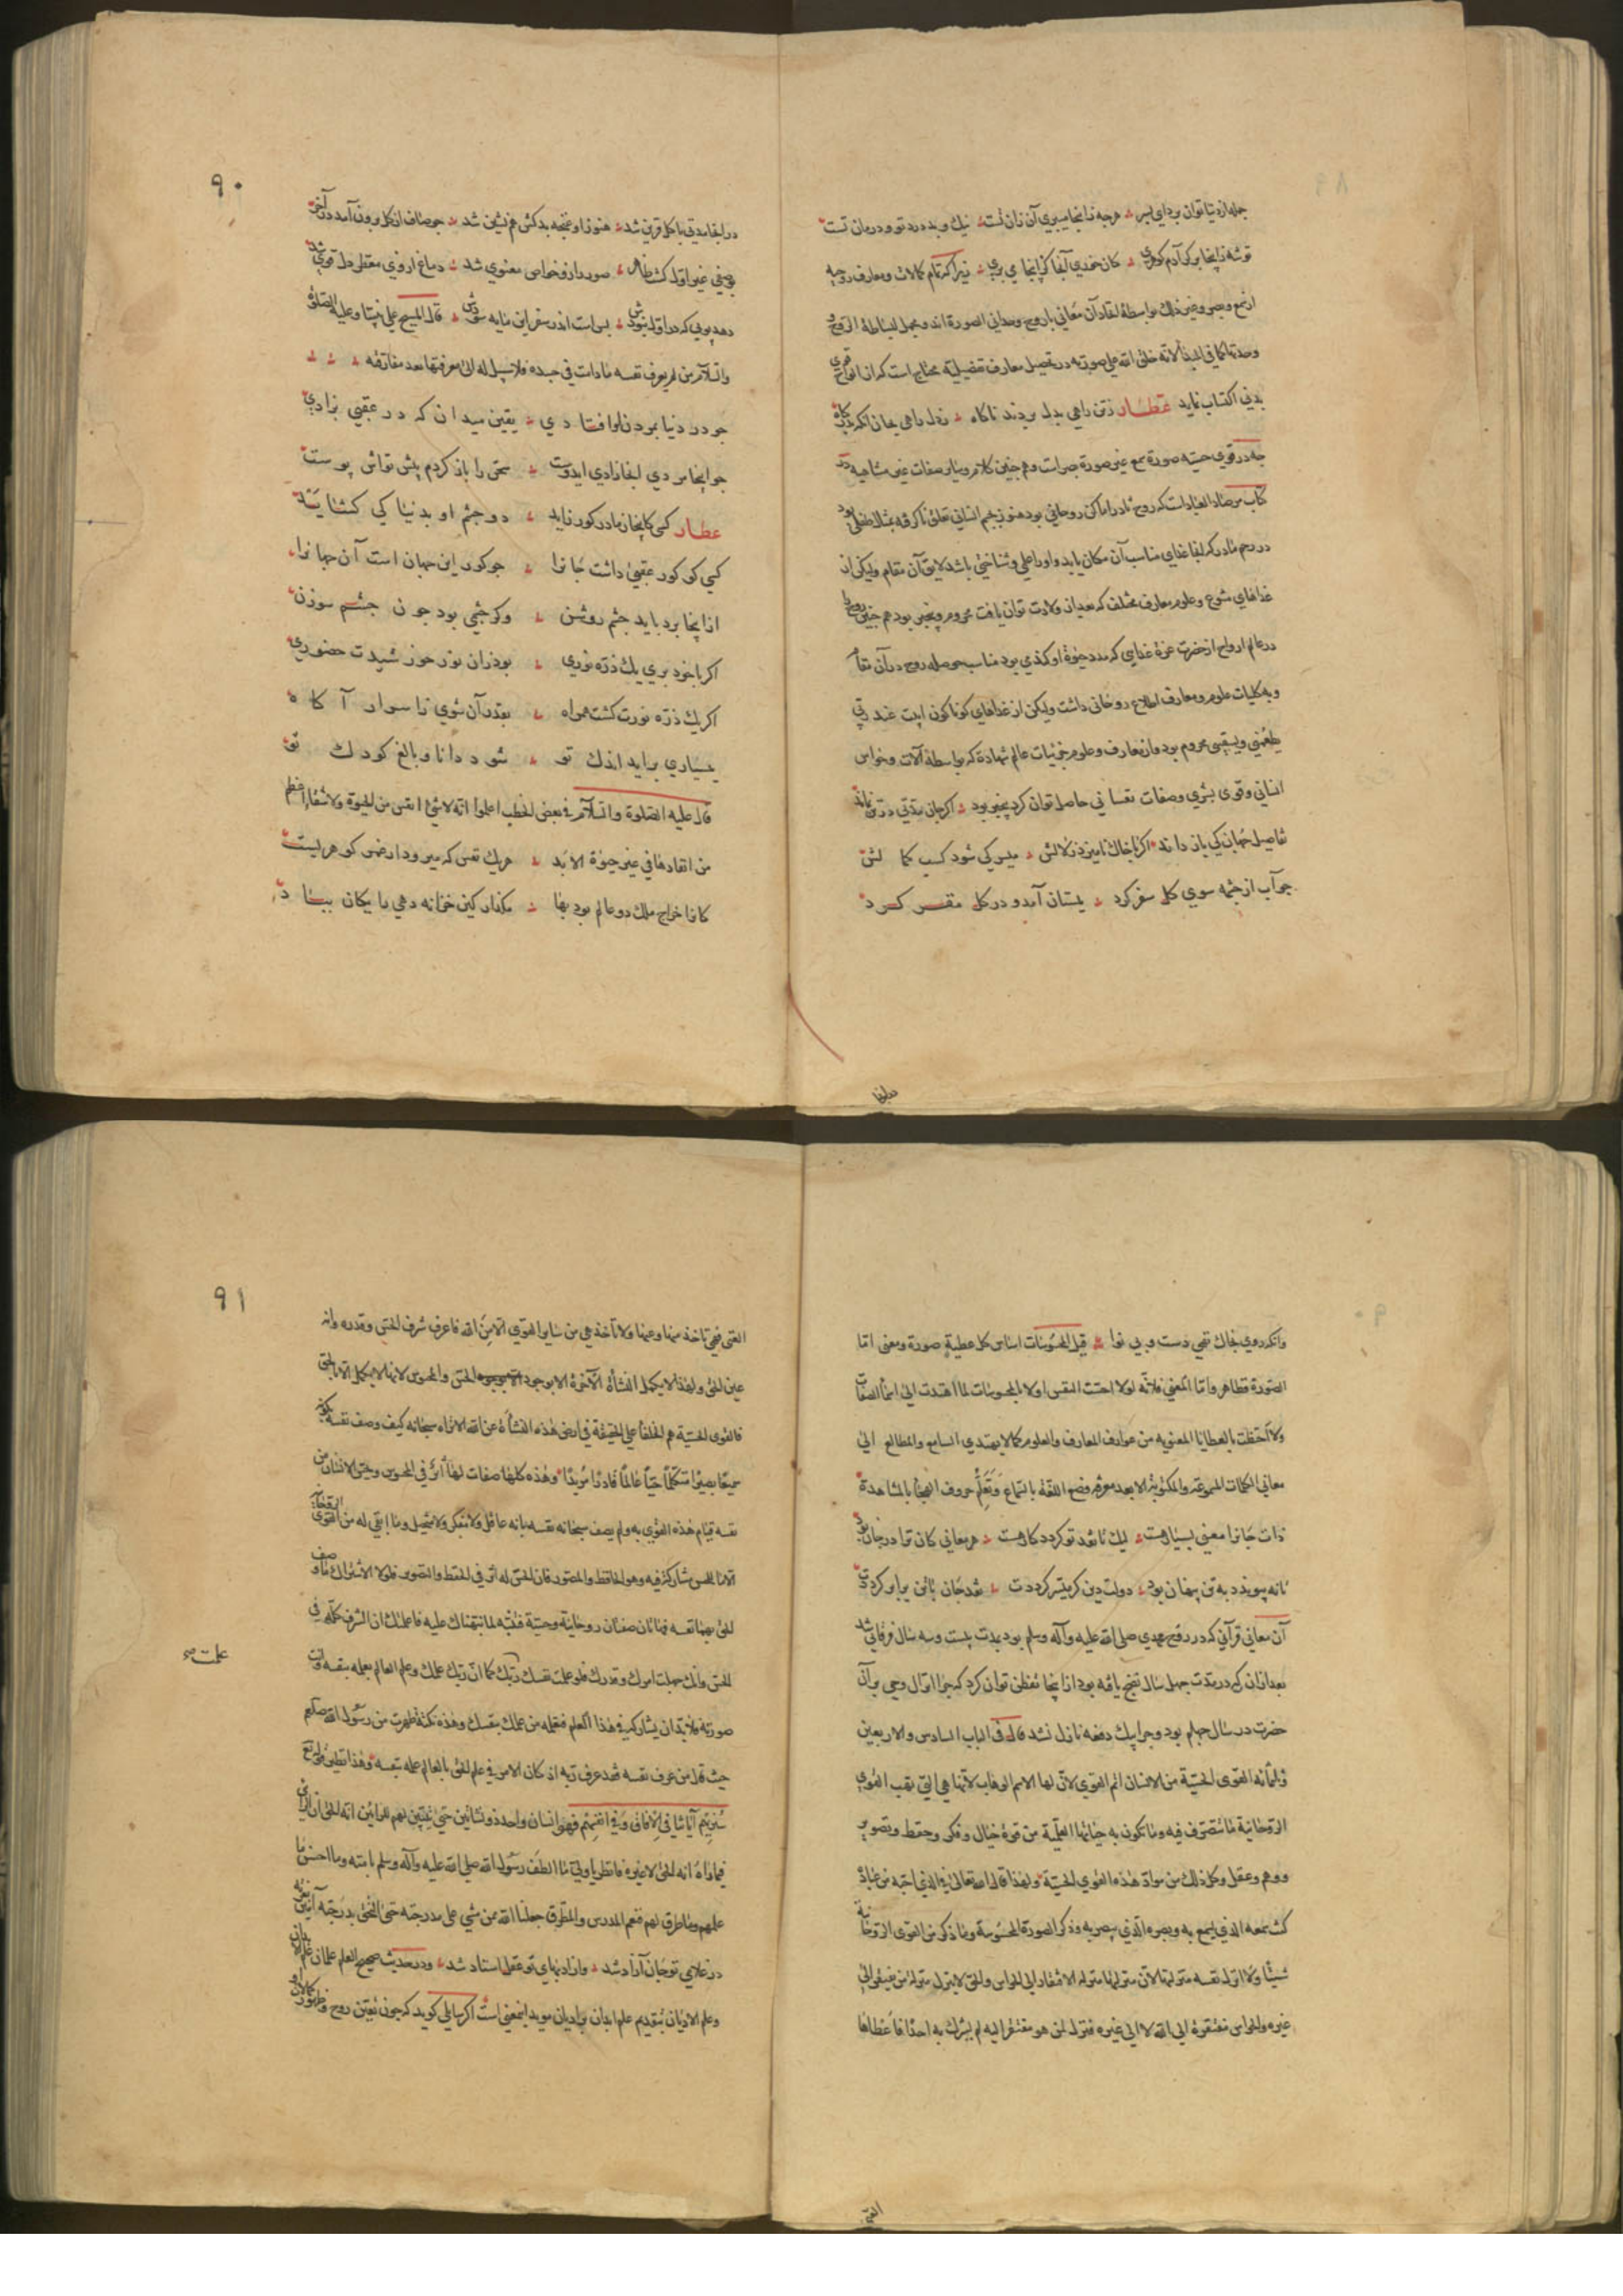 جمله از دنیا توان برد ای پسر هرچه زاینجا میبری آن زان تست نیك و بد درد تو و درمان تست
توشه زاینجا بر که آدم کوهری کان خوری آنجا کز اینجا می بری زیرا که تمام کالات و معارف روحیه
از سمع و بصر و غیر ذلك بواسطهٔ اتحاد آن معانی با روح وحدانی الصورة اند و مجمل لبساطة الروح و
وحدتها کما فی المبدأ لانه خلق الله علی صورته در تحصیل معارف تفصیلیه محتاج است که از قوای
بدنی اکتساب نماید عطار زتن راهی بدل بردند ناکاه زدل راهی بجان انکه بدرکاه
چه در قوی حسیه صورة سمع غیر صورة بصر است و همچنین کلام و سایر صفات غیر متشابهه در
کتاب مرصاد العباد است که روح تا در اماکن روحانی بود هنوز بجسم انسانی تعلق ناکرفته بمثال طفلی بود
در رحم مادر که آنجا غذای مناسب آن مکان یابد و او را علمی و شناختی باشد لایق آن مقام ولیکن از
غذاهای متنوع و علوم و معارف مختلف که بعد از ولادت توان یافت محروم و بیخبر بود همچنین روح را
در عالم ارواح از حضرت عزة غذایی که مدد حیوة او کندی بود مناسب حوصله روح در آن مقام
و به کلیات علوم و معارف اطلاع روحانی داشت ولیکن از غذاهای کوناکون ابیت عند ربی
یطعمنی ویسقینی محروم بود و از معارف و علوم جزئیات عالم شهادة که بواسطهٔ آلات و حواس
انسانی و قوی بشری و صفات نفسانی حاصل توان کرد بیخبر بود اکر جان مدتی در تن نماند
تفاصیل جهان کی باز داند اکر با خاك نامیزد زلالش میسر کی شود کسب کمالش
چو آب از چشمه سوی کل سفر کرد ببستان آمد و در کل مقر کرد
۹۰
در انجا مدتی با کل قرین شد هنوز او غنچه بد کش همنشین شد چو صاف از کل برون آمد در آخر
بوصفی غیر اول کشت ظاهر صور دار و خواص معنوی شد دماغ از وی معطر دل قوی شد
دهد بویی که در اول نبودش بس است اندر سفر این مایه سودش قال المسیح علی نبینا وعلیه الصلوة
والسلام من لم یعرف نفسه مادات فی جسده فلا سبیل له الی معرفتها بعد مفارقته
چو در دنیا بمردن اوفتادی یقین میدان که در عقبی بزادی
چو اینجا مردی آنجا زادی ایدوست سخن را باز کردم پیش تو از پوست
عطار کسی کاینجا ز مادر کور زاید دو چشم او بدنیا کی کشاید
کسی کو کور عقبی داشت جانرا چو کور این جهان است آن جهانرا
از اینجا برد باید چشم روشن وکر چشمی بود چون چشم سوزن
اکر با خود بری یك ذره نوری بود زان نور خورشیدت حضوری
اکر یك ذره نورت کشت همراه بقدر آن شوی زاسرار آکاه
بسیاری براید اندك تو شود دانا و بالغ کودك تو
قال علیه الصلوة والسلام فی بعض الخطب اعلموا انه لا شیء انفس من الحیوة ولا شقاء اعظم
من انفادها فی غیر حیوة الابد هر یك نفس که میرود از عمر کوهریست
کانرا خراج ملك دو عالم بود بها مکذار کین خزانه دهی رایکان بباد
وانکه روی بخاك تهی دست و بی نوا قیل المحسوسات اساس کل عطیة صورة ومعنی اما
الصورة فظاهر واما المعنی فلانه لولا احست النفس اولا بالمحسوسات لما اهتدت الی اسماء الصفات
ولا احتظت بالعطایا المعنویه من عوارف المعارف والعلوم کما لا یهتدی السامع والمطالع الی
معانی الکلمات المسموعة والمکتوبة الا بعد معرفه وضع اللغة بالسماع وتعلم حروف الهجا بالمشاهدة
ذات جانرا معنی بسیار هست لیك تا نقد تو کردد کار هست هر معانی کان ترا در جان بود
تا نپیوندد به تن پنهان بود دولت دین کر میسر کرددت نقد جان با تن برابر کرددت
آن معانی قرآنی که در روح محمدی صلی الله علیه وآله وسلم بود بمدت بیست و سه سال فرقانی شد
بعد از آن که در مدت چهل سال نضج یافته بود از اینجا تفطن توان کرد که چرا انزال وحی بر آن
حضرت در سال چهلم بود و چرا بیك دفعه نازل نشد قال فی الباب السادس والاربعین
وثلثمائة القوی الحسیة من الانسان اتم القوی لان لها الاسم الوهاب لانها هی التی تهب القوی
الروحانیة ما تتصرف فیه وما تکون به حیاتها العلمیة من قوة خیال وفکر وحفظ وتصویر
ووهم وعقل وکل ذلك من مواد هذه القوی الحسیة ولهذا قال الله تعالی فی الذی احبه من عباده
کنت سمعه الذی یسمع به وبصره الذی یبصر به وذکر الصورة المحسوسة وما ذکر من القوی الروحانیة
شیئا ولا انزل نفسه منزلتها لان منزلتها منزله الافتقار الی الحواس والحق لا ینزل منزله من یفتقر الی
غیره والحواس مفتقرة الی الله لا الی غیره فنزل لمن هو مفتقر الیه لم یشرك به احدا فاعطاها
۹۱
الغنی فهی تاخذ منها وعنها ولا تأخذ هی من سایر القوی الا من الله فاعرف شرف الحس وقدره وانه
عین الحق ولهذا لا یکمل النشأة الآخرة الا بوجود الحس والمحسوس لانها لا یکمل الا بالحق
فالقوی الحسیة هم الخلفا علی الحقیقة فی ارض هذه النشأة عن الله الا تراه سبحانه کیف وصف نفسه بکونه
سمیعا بصیرا متکلما حیا عالما قادرا مریدا وهذه کلها صفات لها أثر فی المحسوس وحس الانسان من
نفسه قیام هذه القوی به ولم یصف سبحانه نفسه بانه عاقل ولا مفکر ولا متخیل وما ابقی له من القوی الروحانیة
الا ما للحس مشارکة فیه وهو الحافظ والمصور فان الحس له اثر فی الحفظ والتصویر فلولا الاشتراك ما وصف
الحق بهما نفسه فهاتان صفتان روحانیة وحسیة فتنبه لما نبهناك علیه فاعلمك ان الشرف کله فی
الحس وانك جهلت امرك وقدرك فلو علمت نفسك علمت ربك کما ان ربك علمك وعلم العالم بعلمه بنفسه وانت
صورته فلا بد ان یشارکه فی هذا العلم فتعلمه من علمك بنفسك وهذه نکتة ظهرت من رسول الله صلعم
حیث قال من عرف نفسه فقد عرف ربه اذ کان الامر فی علم الحق بالعالم علمه بنفسه وهذا نظیر قوله تع
سنریهم آیاتنا فی الآفاق وفی انفسهم فهو انسان واحد ذو نشأتین حتی یتبین لهم للرائین انه الحق ان الرائی
فیما راه انه الحق لا غیره فانظر یا ولی ما الطف رسول الله صلی الله علیه وآله وسلم بامته وما احسن ما
علمهم وما طرق لهم فنعم المدرس والمطرق جعلنا الله ممن مشی علی مدرجته حتی التحق بدرجته آمین
در غلامی تو جان آزاد شد وز ادبهای تو عقل استاد شد و در حدیث صحیح العلم علمان علم الابدان
وعلم الادیان بتقدیم علم ابدان بر ادیان موید اینمعنی است اکر سایلی کوید که چون تعین روح و ظهور کمالات او